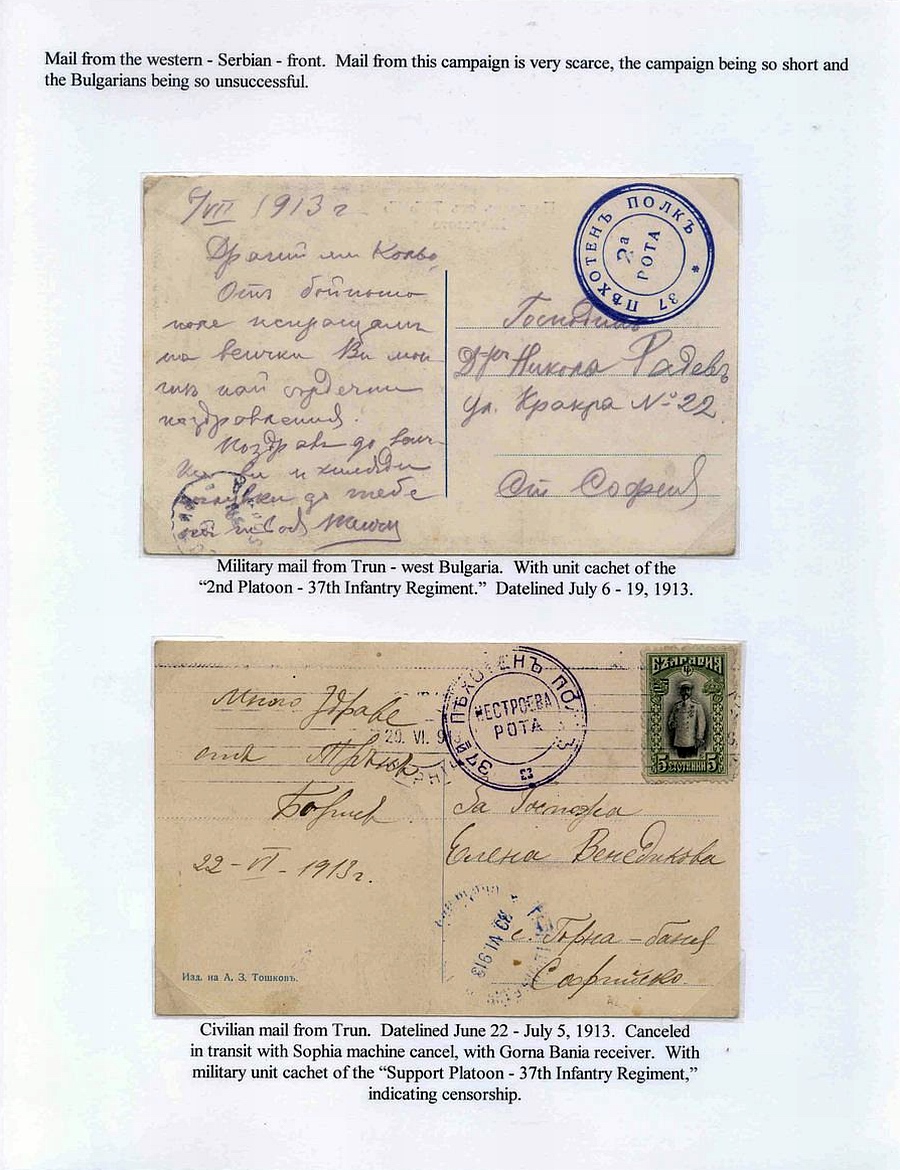 Mail from the western - Serbian - front. Mail from this campaign is very scarce, the campaign being so short and
the Bulgarians being so unsuccessful.
/VII 1913 г
Драгий ми Кольо,
Отъ бойното
поле испращамъ
на всички Ви
най сърдечни
поздравления.
Поздрав до
и хиляди
целувки до тебе
отъ
37 ПѢХОТЕНЪ ПОЛКЪ *
2а
РОТА
Господинъ
Д-ръ Никола Радевъ
ул. Кракра № 22
Ст София
Military mail from Trun - west Bulgaria. With unit cachet of the
“2nd Platoon - 37th Infantry Regiment.” Datelined July 6 - 19, 1913.
Много Здраве
отъ Трънъ
Борисъ
22 - VI - 1913 г.
Изд. на А. З. Тошковъ.
29. VI. 9
37й ПѢХОТЕНЪ ПОЛ
НЕСТРОЕВА
РОТА
БЪЛГАРИЯ
5 СТОТИНКИ 5
За Госпожа
Елена Венедикова
с. Горна - баня
Софийско
VI. 913
Civilian mail from Trun. Datelined June 22 - July 5, 1913. Canceled
in transit with Sophia machine cancel, with Gorna Bania receiver. With
military unit cachet of the “Support Platoon - 37th Infantry Regiment,”
indicating censorship.